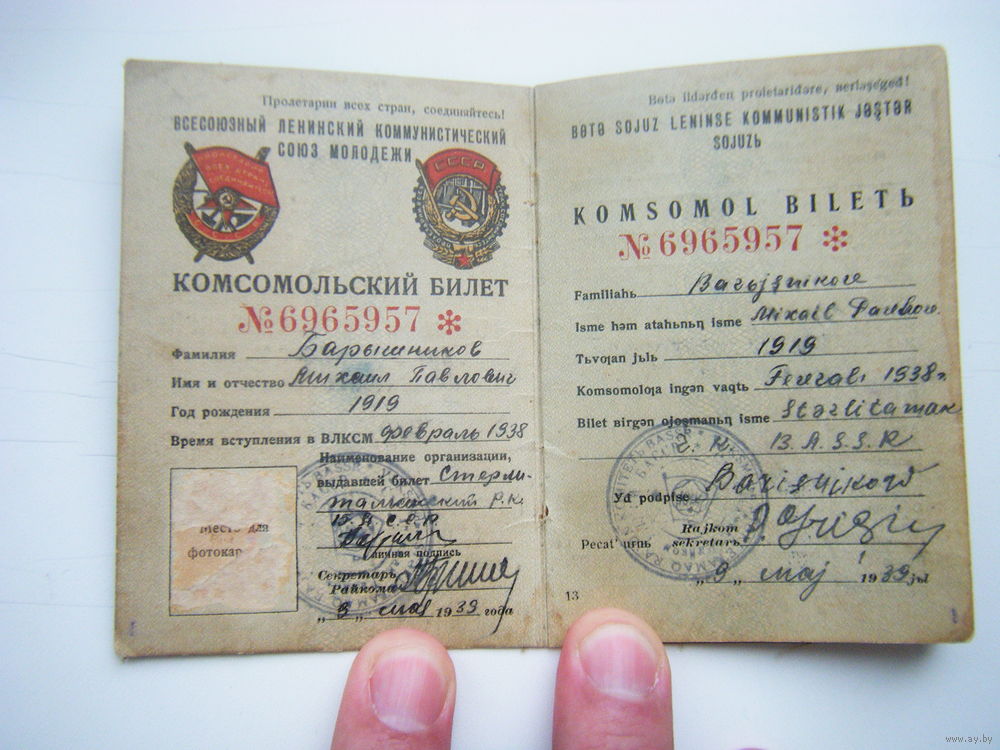 Пролетарии всех стран, соединяйтесь!
ВСЕСОЮЗНЫЙ ЛЕНИНСКИЙ КОММУНИСТИЧЕСКИЙ
СОЮЗ МОЛОДЕЖИ
СССР
КОМСОМОЛЬСКИЙ БИЛЕТ
№ 6965957 *
Фамилия Барышников
Имя и отчество Михаил Павлович
Год рождения 1919
Время вступления в ВЛКСМ февраль 1938
Наименование организации,
выдавшей билет Стерли-
тамакский Р.К.
Б А С С Р
личная подпись
Место для
фотокар
Секретарь
Райкома
„9„ мая 1939 года
Bɵtɘ ildɘrdeꞑ proletaridɘre, berlɘşegeđ!
BɵTɘ SOJUZ LENINSE KOMMUNISTIK JɘŞTɘR
SOJUZЬ
KOMSOMOL BILETЬ
№ 6965957 *
Familiahь Barьjşnikov
Isme hɘm atahьnьꞑ isme Mixail
Tьvƣan jьlь 1919
Komsomolƣa ingɘn vaqtь Fevral 1938 г.
Bilet birgɘn ojoşmanьꞑ isme Stɘrlitamak
B.A.S.S.R
Yđ podpise
Rajkom
Pecat' urьnь sekretarь
„9„ maj 1939 jьl
13
www.ay.by